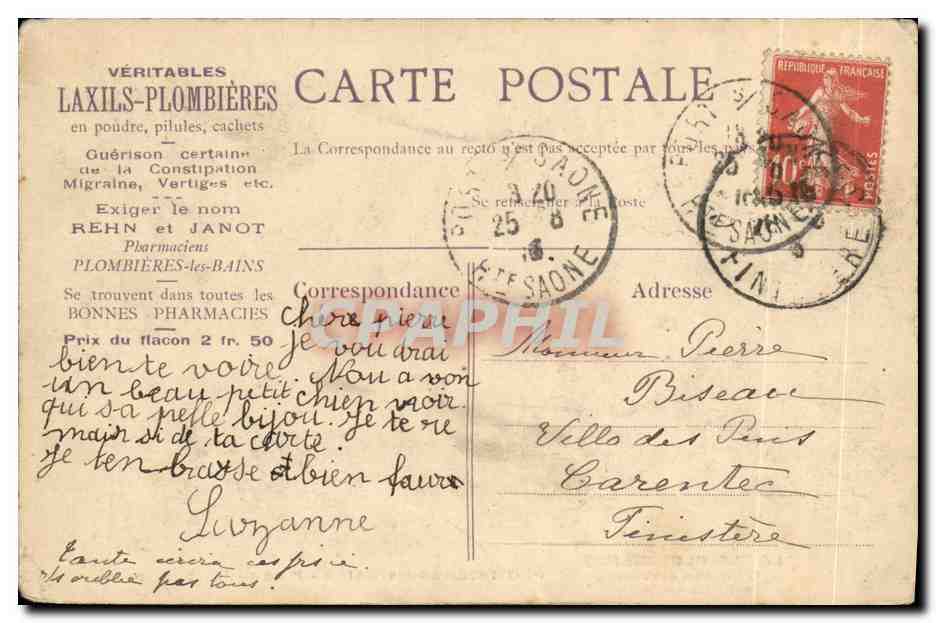 VÉRITABLES
LAXILS-PLOMBIÈRES
en poudre, pilules, cachets
Guérison certaine
de la Constipation
Migraine, Vertiges etc.
Exiger le nom
REHN et JANOT
Pharmaciens
PLOMBIÈRES-les-BAINS
Se trouvent dans toutes les
BONNES PHARMACIES
Prix du flacon 2 fr. 50
CARTE POSTALE
La Correspondance au recto n'est pas acceptée par tous les pays
Se renseigner à la Poste
RÉPUBLIQUE FRANÇAISE
10
POSTES
PORT S/ SAONE
25 8
Hte SAONE
FINISTERE
CPAPHIL
Correspondance
Adresse
chère pierre
je voudrai
bien te voire. Nou a von
un beau petit chien noir.
qui sa pelle bijou. Je te re
mair si de ta carte.
Je ten brasse bien
Suzanne
Tante
oublie pas tous.
Monsieur Pierre
Biseau
Villa des Pins
Carentec
Finistère